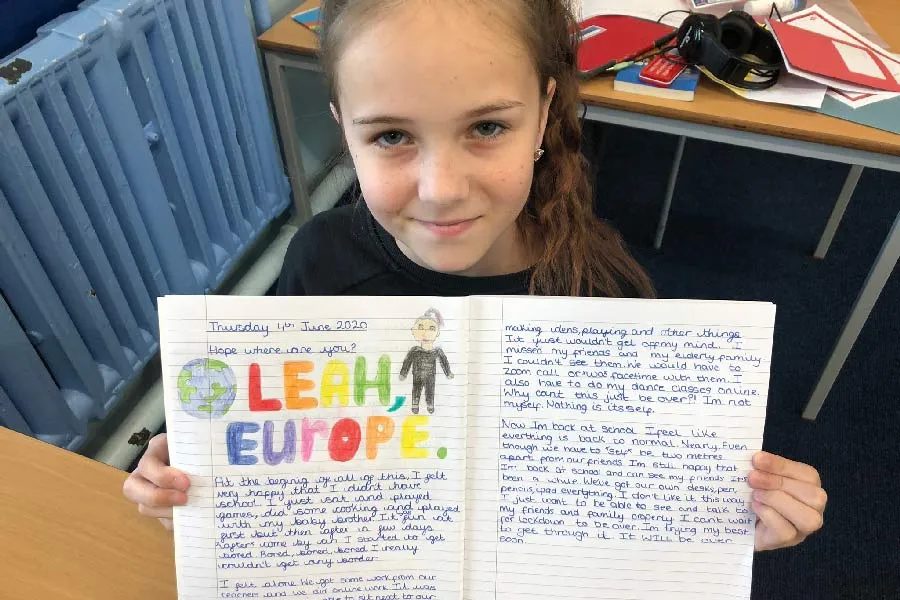 Thursday 4th June 2020
Hope where are you?
LEAH,
EUROPE.
At the begining of all of this, I felt
very happy that I didn't have
school. I just sat and played
games, did some cooking and played
with my baby brother. It fun at
first but then after in few days
came by
I started to get
bored. Bored, bored, bored I really
couldn't get any border.
I felt alone. We got some work from our
teachers and we did online work. It was
to sit next to our
making idens, playing and other things
It just wouldn't get off my mind. I
missed my friends and my elderly family
I couldn't see them. We would have to
Zoom call or facetime with them. I
also have to do my dance classes online.
Why cant this just be over?! Im not
myself. Nothing is itsself.
Now Im back at school I feel like
everthing is back to normal. Nearly. Even
though we have to be two metres
apart from our friends. Im still happy that
Im back at school and can see my friends. It's
been a while. We've got our own desk, pen,
pencils, ipad everything. I don't like it this way
I just want to be able to see and talk to
my friends and family properly. I can't wait
for lockdown to be over. Im trying my best
to get through it. It WILL be over
soon.